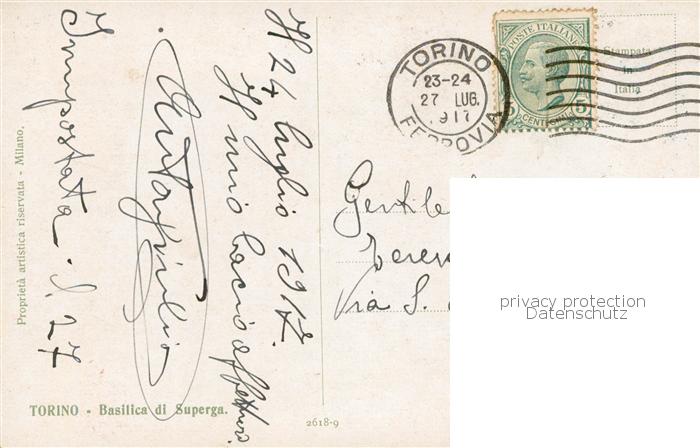 Il 24 luglio 1917.
Il mio bacio affettuoso.
Impostata il 27
Proprietà artistica riservata - Milano.
TORINO - Basilica di Superga.
2618-9
TORINO
23-24
27 LUG.
1917
FERROVIA
POSTE ITALIANE
5 5
CENTESIMI
Stampata
in
Italia
Gentile
Via S.
privacy protection
Datenschutz